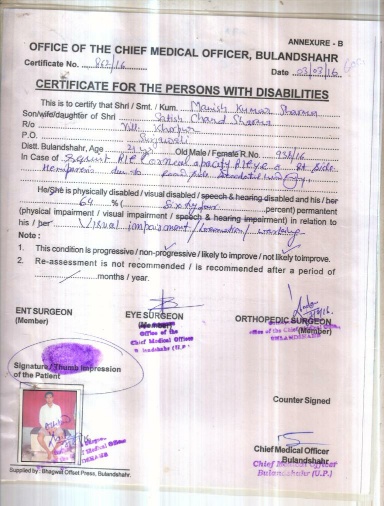 ANNEXURE - B
OFFICE OF THE CHIEF MEDICAL OFFICER, BULANDSHAHR
Certificate No. 867/16 Date 03/03/16
CERTIFICATE FOR THE PERSONS WITH DISABILITIES
This is to certify that Shri / Smt. / Kum. Manish Kumar Sharma
Son/wife/daughter of Shri Satish Chand Sharma
R/o Vill. Kharpur
P.O.
Distt. Bulandshahr, Age 21 yr. Old Male / Female R.No. 958/16
In Case of Squint R/E Corneal opacity R/Eye c Rt side
Hemiparesis due to Road side
He/She is physically disabled / visual disabled / speech & hearing disabled and his / her
64 % ( Sixty four percent) permanent
(physical impairment / visual impairment / speech & hearing impairment) in relation to
his / her Visual impairment / locomotion / working
Note :
1. This condition is progressive / non-progressive / likely to improve / not likely to improve.
2. Re-assessment is not recommended / is recommended after a period of
months / year.
ENT SURGEON
(Member)
EYE SURGEON
(Member)
Office of the
Chief Medical Officer
Bulandshahr (U.P.)
ORTHOPEDIC SURGEON
(Member)
Office of the Chief
BULANDSHAHR
Signature / Thumb Impression
of the Patient
Counter Signed
Chief Medical Officer
Bulandshahr.
Chief Medical Officer
Bulandshahr (U.P.)
Supplied by : Bhagwati Offset Press, Bulandshahr.